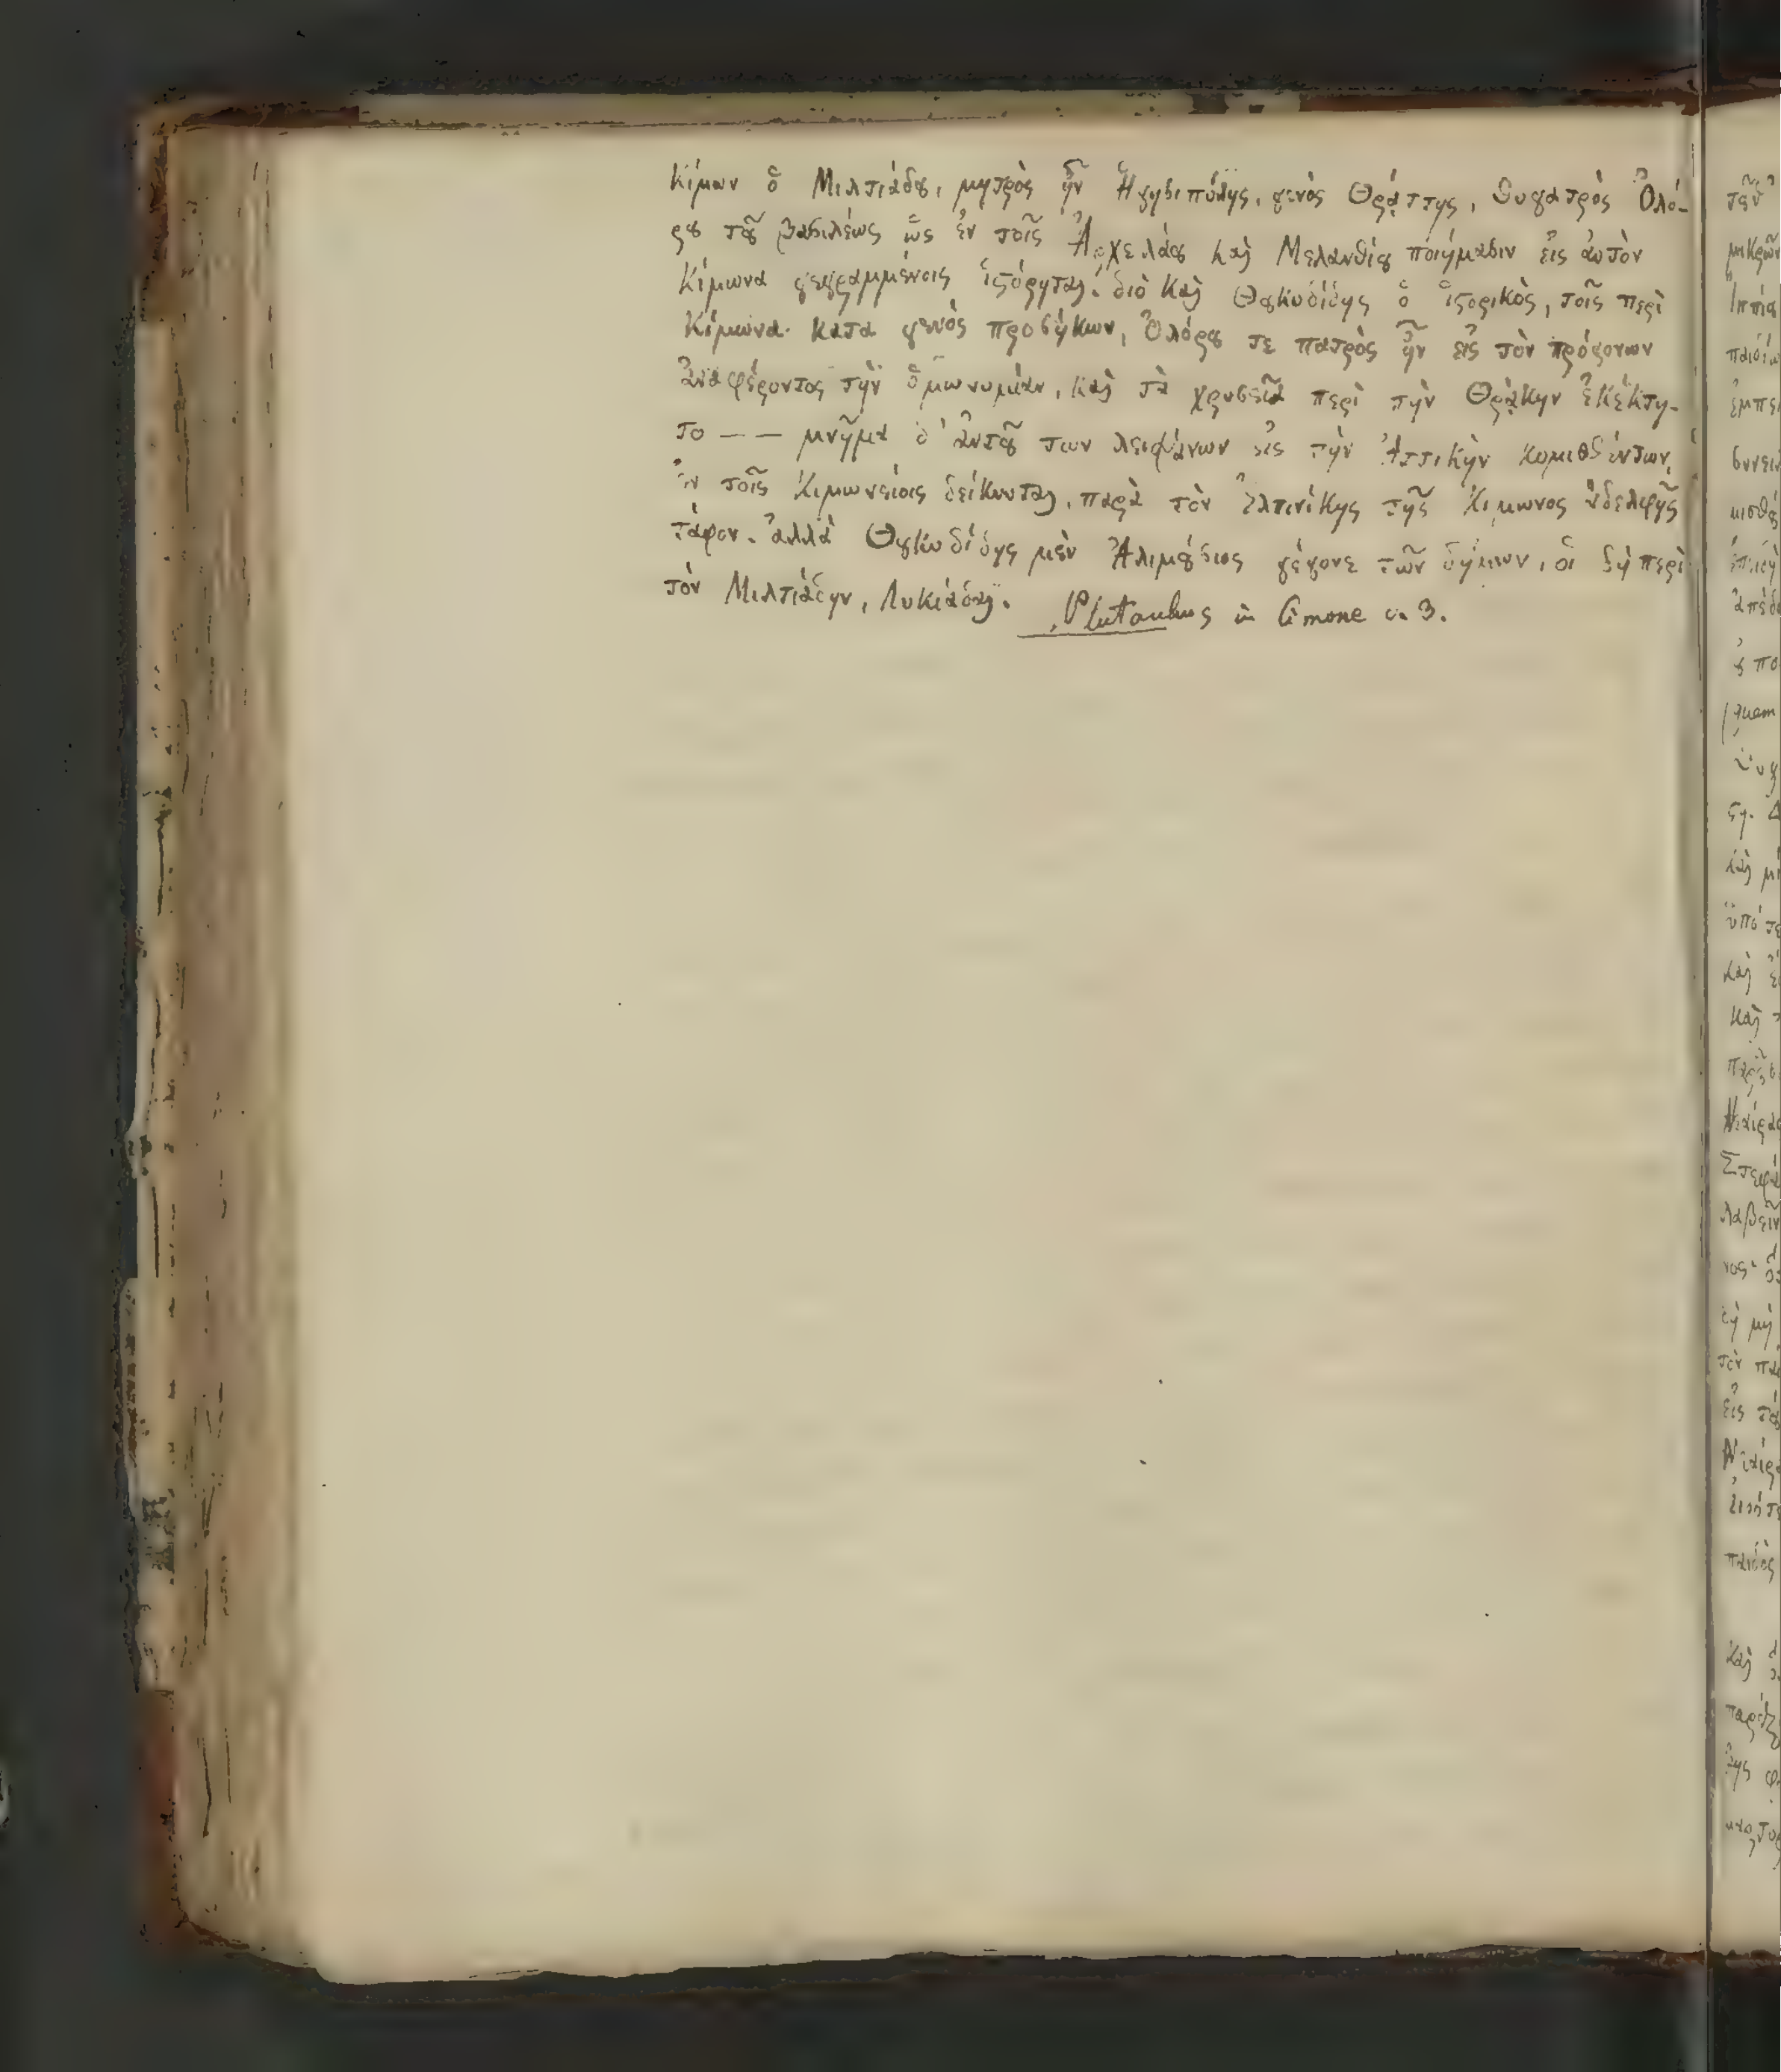 Κίμων ὁ Μιλτιάδου, μητρὸς ἦν Ἡγησιπύλης, γενὸς Θρᾴττης, θυγατρὸς Ὀλό-
ρου τοῦ βασιλέως ὡς ἐν τοῖς Ἀρχελάου καὶ Μελανθίου ποιήμασιν εἰς ἀυτὸν
Κίμωνα γεγραμμένοις ἱστόρηται. διὸ καὶ Θουκυδίδης ὁ ἱστορικὸς, τοῖς περὶ
Κίμωνα κατα γενὸς προσήκων, Ὀλόρου τε πατρὸς ἦν εἰς τὸν πρόγονων
ἀναφέροντος τὴν ὁμωνυμίαν, καὶ τὰ χρυσεῖα περὶ τὴν Θρᾴκην ἐκέκτη-
το — — μνῆμα δ' ἀυτοῦ των λειψάνων εἰς τὴν Ἀττικὴν κομισθέντων,
ἐν τοῖς Κιμωνείοις δείκνυται, παρὰ τὸν Ἐλπινίκης τῆς Κίμωνος ἀδελφῆς
τάφον. ἀλλὰ Θουκυδίδης μὲν Ἁλιμούσιος γέγονε τῶν δήμων, οἱ δὴ περὶ
τὸν Μιλτιάδην, Λυκιάδαι. Plutarchus in Cimone c. 3.